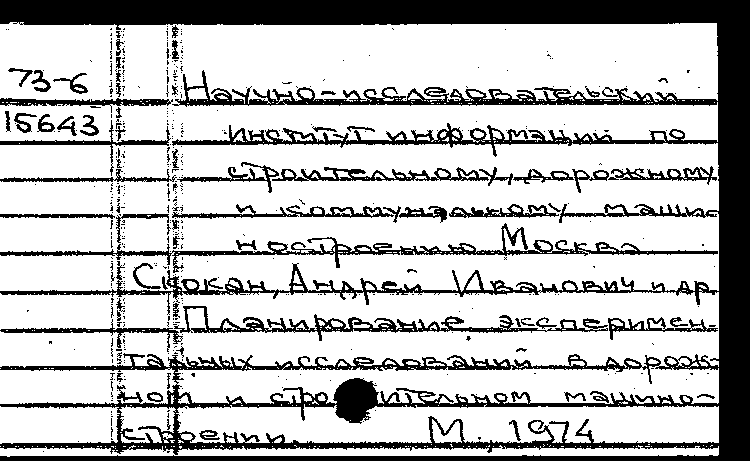 73-6 Научно-исследовательский
15643 институт информации по
строительному, дорожному
и коммунальному маши-
ностроению Москва
Скокан, Андрей Иванович и др.
Планирование эксперимен-
тальных исследований в дорож-
ном и строительном машино-
строении. М., 1974